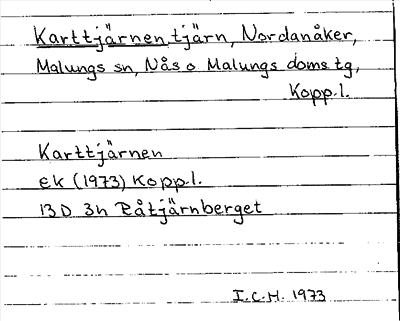 Karttjärnen tjärn, Nordanåker,
Malungs sn, Nås o Malungs doms.tg,
Kopp.l.
Karttjärnen
ek (1973) Kopp.l.
13D 3h Råtjärnberget
I.C.H. 1973